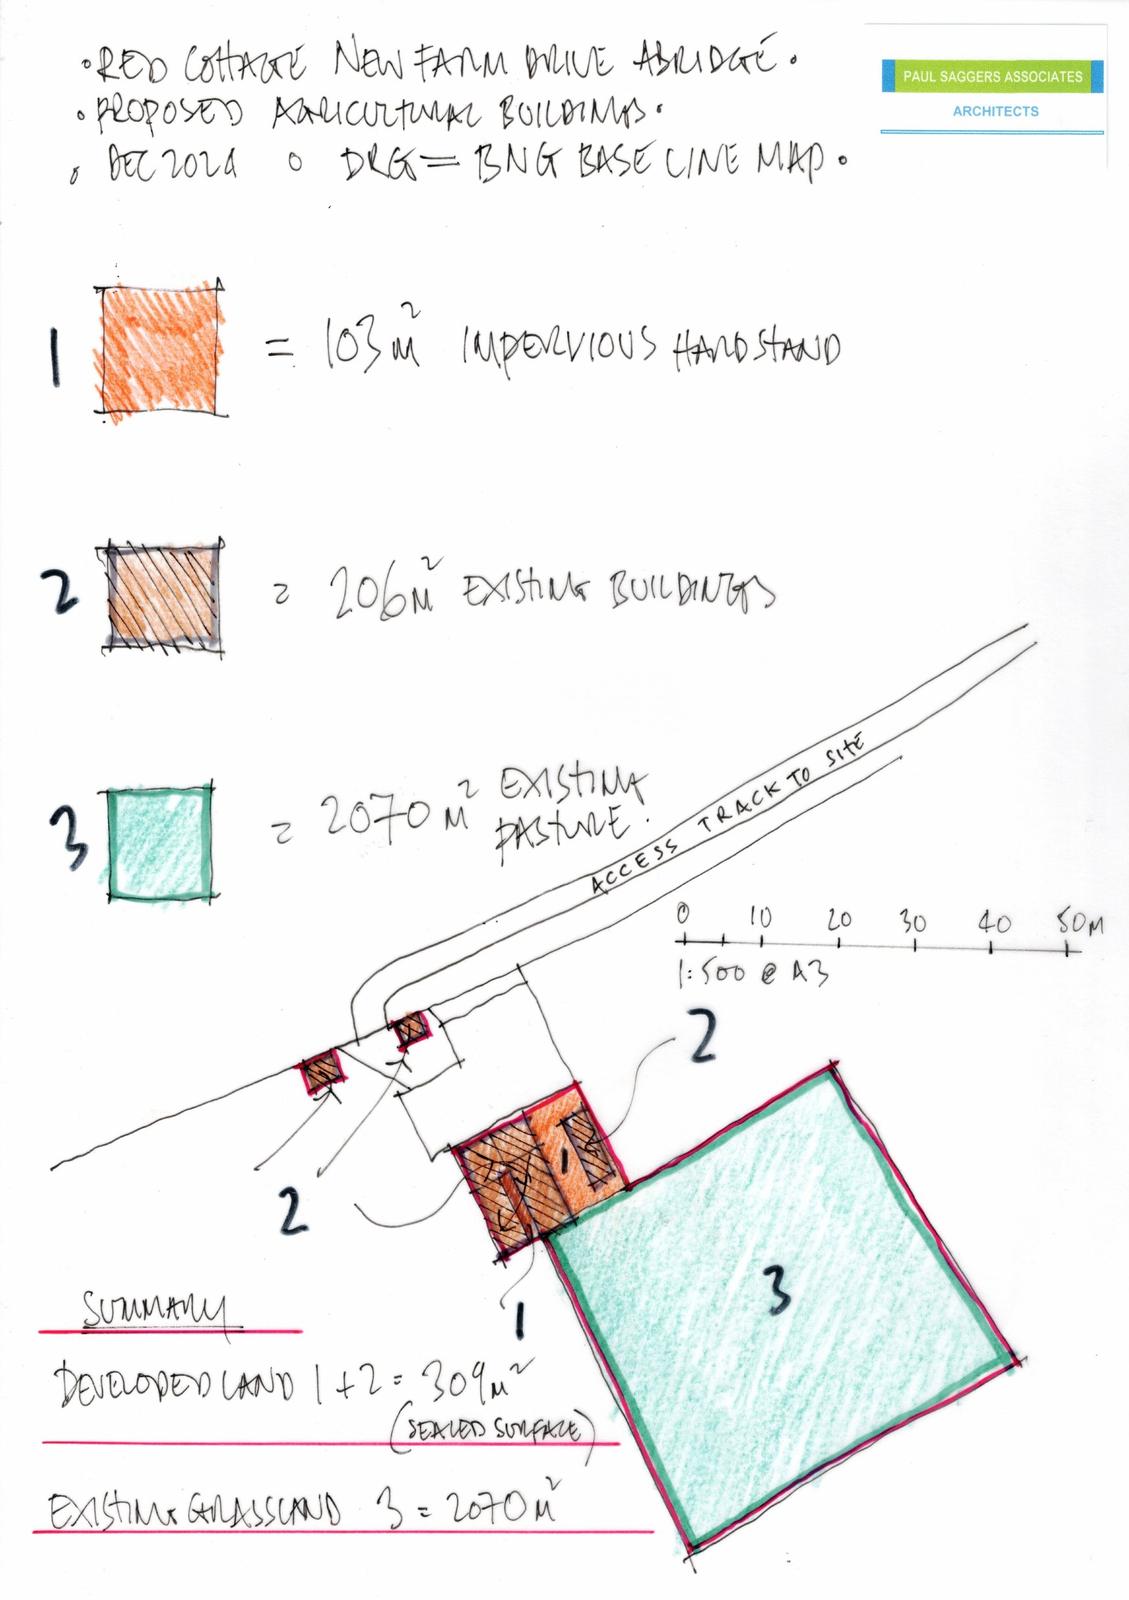 • RED COTTAGE NEW FARM DRIVE ABRIDGE •
• PROPOSED AGRICULTURAL BUILDINGS •
• DEC 2024 o DRG = BNG BASE LINE MAP •
PAUL SAGGERS ASSOCIATES
ARCHITECTS
1 = 103m² IMPERVIOUS HARDSTAND
2 = 206m² EXISTING BUILDINGS
3 = 2070m² EXISTING
PASTURE.
ACCESS TRACK TO SITE
0 10 20 30 40 50M
1:500 @ A3
2
2
1
1
3
SUMMARY
DEVELOPED LAND 1 + 2 = 309m²
(SEALED SURFACE)
EXISTING GRASSLAND 3 = 2070m²